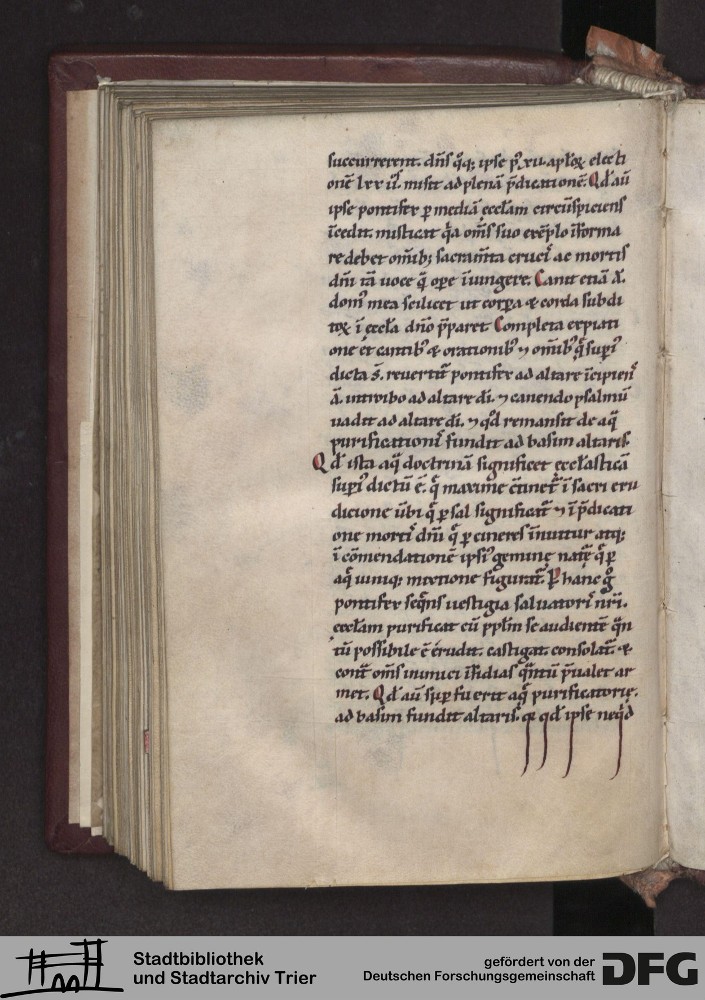 succurrerent. dn̄s q̊q; ipse p̱ xii. apl̄oꝝ electi
onē lxx ii. misit ad plenā p̄dicationē. Qd̄ aū
ipse pontifex ꝑ mediā ęccl̄am circūspiciens
īcedit. misticat q̄a om̄s suo exēplo īforma
re debet omib; sacram̄ta cruci ac mortis
dn̄i tā uoce q̄ ope īiungere. Cantt etiā A.
dom᷒ mea scilicet ut corꝑa ⁊ corda subdi
toꝝ ī ęccl̄a dn̄o p̄paret. Completa expiati
one cū cantib᷒ ⁊ orationib᷒ ⁊ omib᷒ q̄ supi᷒
dicta s̄. reuertit᷒ pontifex ad altare īcipien᷒
ā. introibo ad altare dī. ⁊ canendo psalmū
uadit ad altare dī. ⁊ qd̄ remansit de aq̄
purificationi᷒ fundit ad basim altaris.
Qd̄ ista aq̄ doctrinā significet ęccl̄asticā
supi᷒ dictū ē. q̄ maxime c̄tinet᷒ ī sacri eru
dicione ūbi q̄ ꝑ sal significat᷒ ⁊ ī p̄dicati
one morti᷒ dn̄i q̄ ꝑ cineres īnuitur atq;
ī cōmendationē ipsi᷒ geminę natę q̄ ꝑ
aq̄ uiniq; mixtione figurat᷒. P hanc g̊
pontifex seq̄ns uestigia saluatori᷒ nr̄i.
ęccl̄am purificat cū ppl̄m se audientē q̄n
tū possibile ē erudit. castigat. consolat᷒. ⁊
cont᷒ om̄s inimici īsidias q̄ntū p̄ualet ar
met. Qd̄ aū sup fuerit aq̄ purificatorię.
ad basim fundit altaris. qd̄ ipse neq̊d
Stadtbibliothek
und Stadtarchiv Trier
gefördert von der
Deutschen Forschungsgemeinschaft
DFG